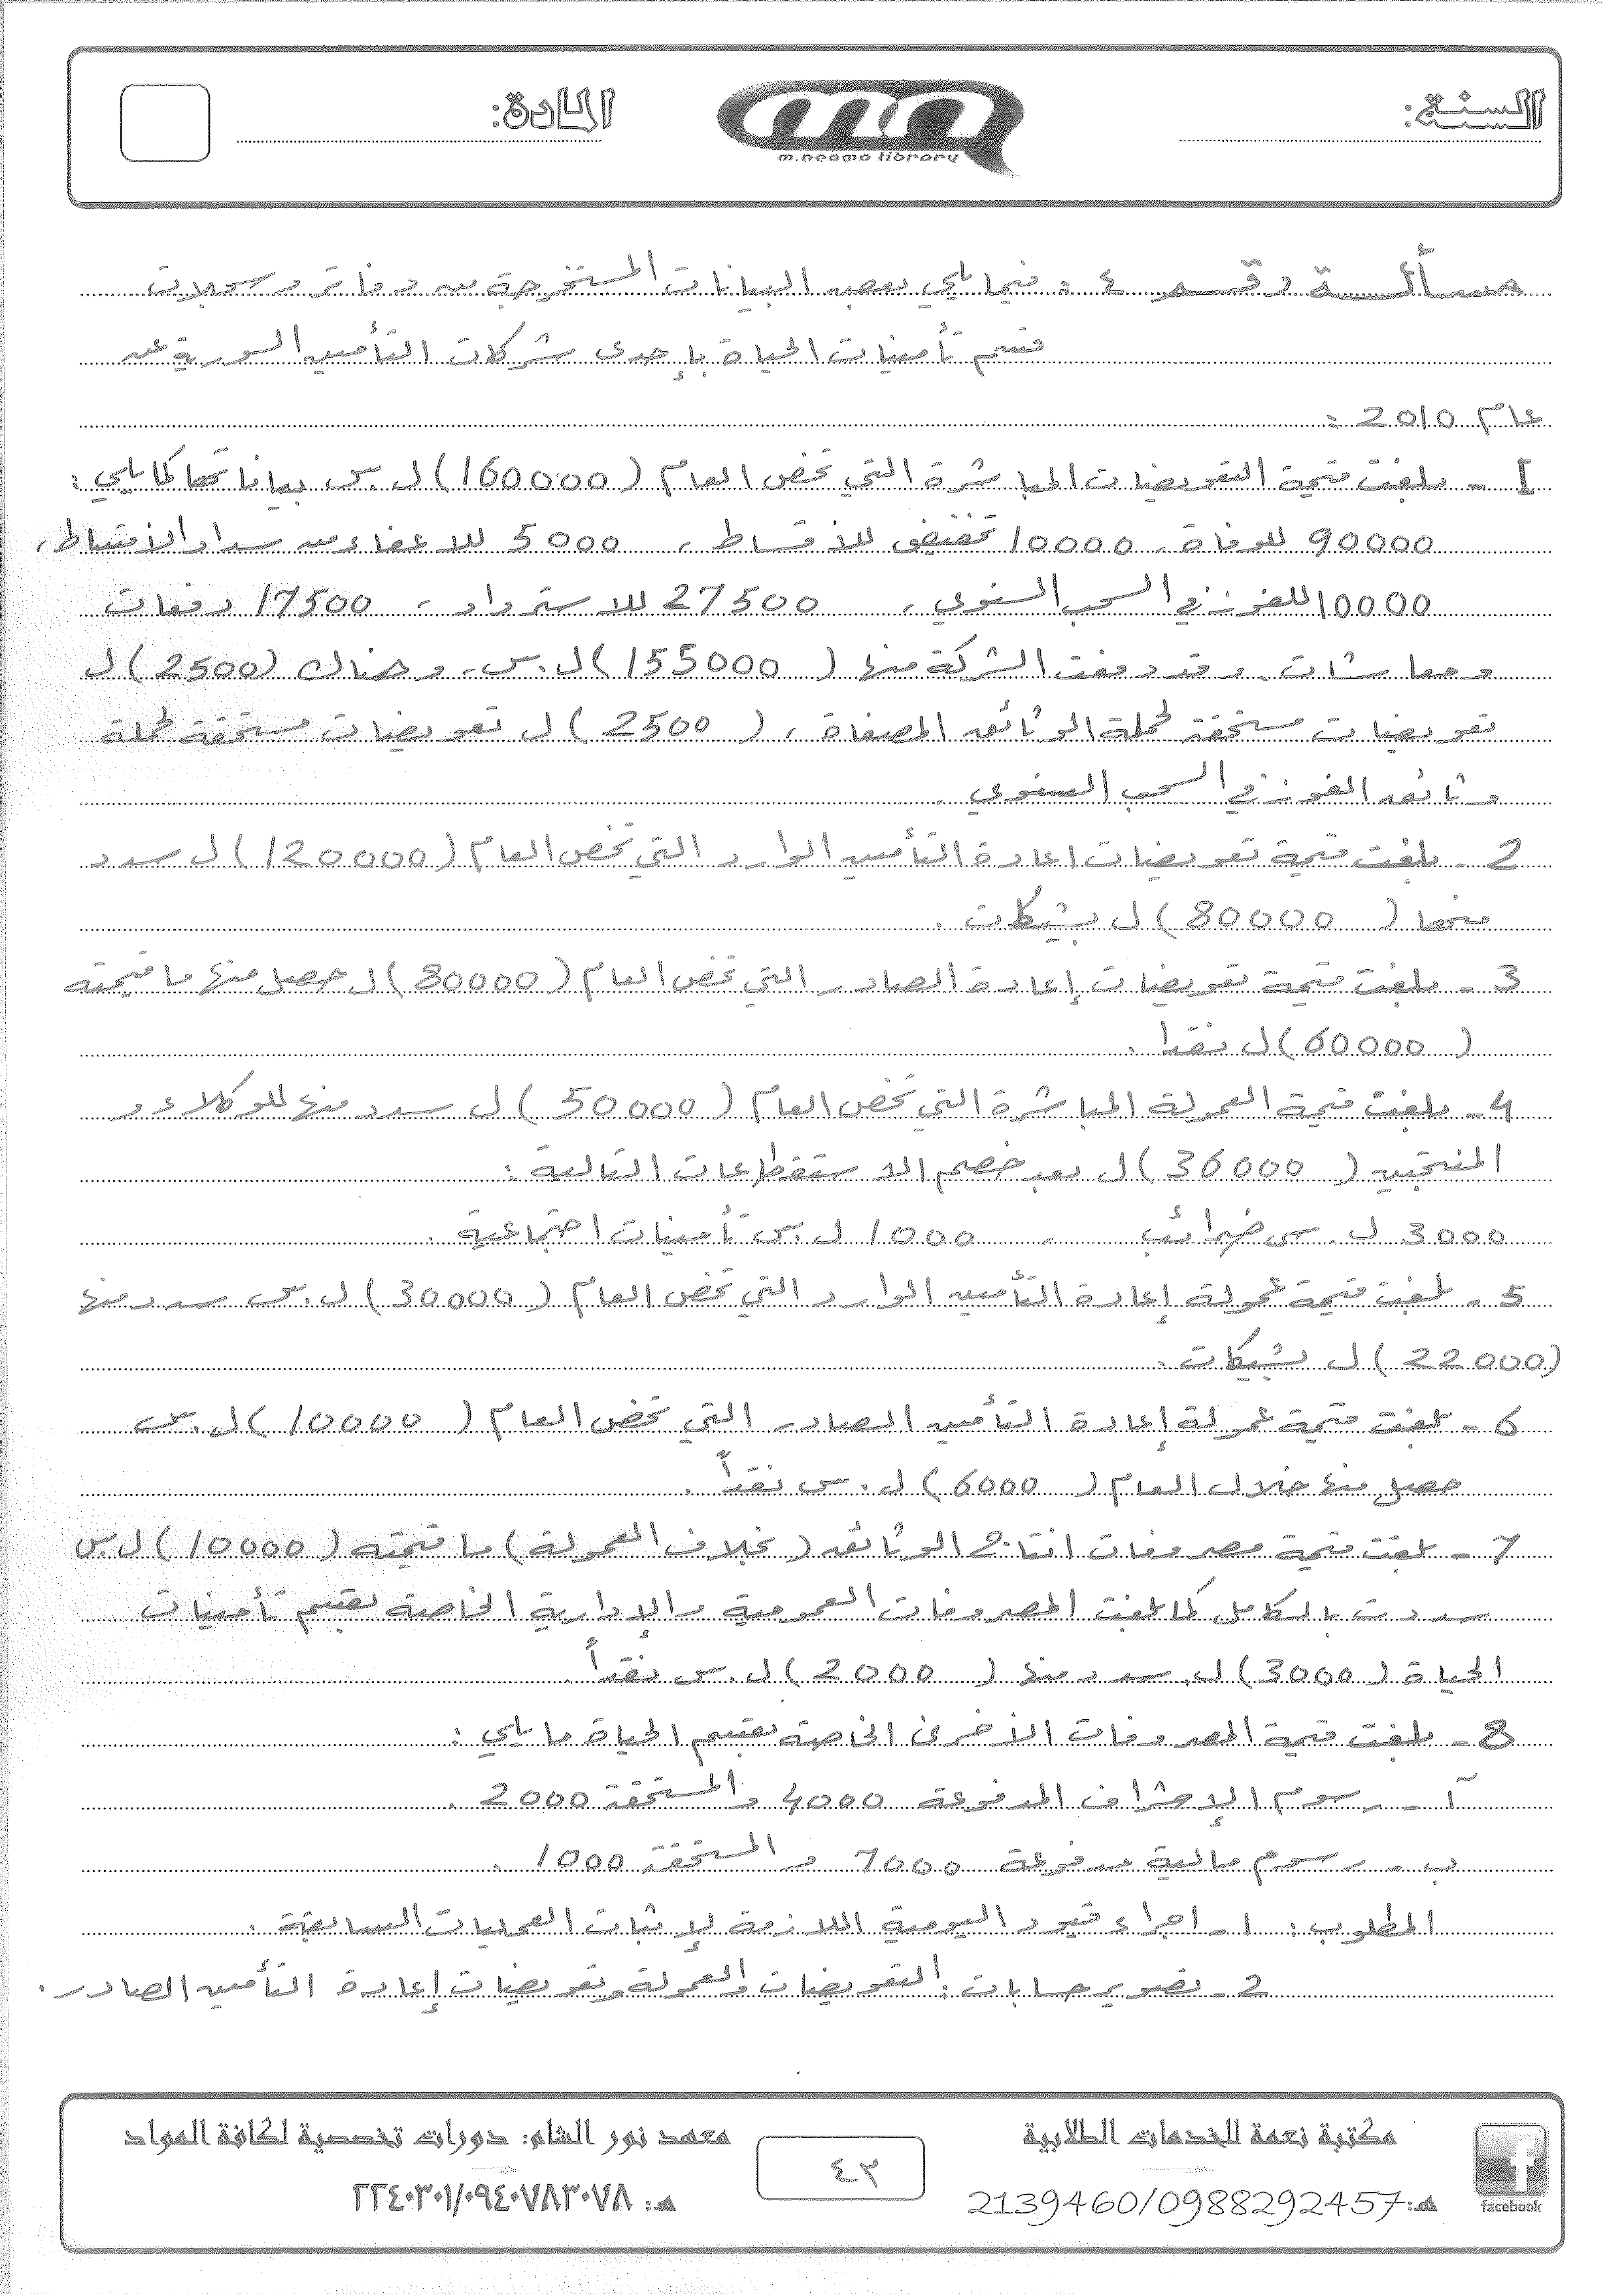 السنة:
m.neama library
المادة:
مسألة رقم ٤ : فيما يلي بعض البيانات المستخرجة من دفاتر وسجلات
قسم تأمينات الحياة بإحدى شركات التأمين السورية عن
عام 2010 :
1 - بلغت قيمة التعويضات المباشرة التي تخص العام (160000) ل.س بياناتها كما يلي :
90000 للوفاة ، 10000 تخفيض للأقساط ، 5000 للاعفاء من سداد الأقساط ،
10000 للفوز في السحب السنوي ، 27500 للاسترداد ، 17500 دفعات
ومعاشات . وقد دفعت الشركة منها (155000) ل.س. وهناك (2500) ل
تعويضات مستحقة لحملة الوثائق المصفاة ، (2500) ل تعويضات مستحقة لحملة
وثائق الفوز في السحب السنوي .
2 - بلغت قيمة تعويضات اعادة التأمين الوارد التي تخص العام (120000) ل سدد
منها (80000) ل بشيكات .
3 - بلغت قيمة تعويضات إعادة الصادر التي تخص العام (80000) ل حصل منها ما قيمته
(60000) ل نقدا .
4 - بلغت قيمة العمولة المباشرة التي تخص العام (50000) ل سدد منها للوكلاء و
المنتجين (36000) ل بعد خصم الاستقطاعات التالية :
3000 ل.س ضرائب ، 1000 ل.س تأمينات اجتماعية .
5 - بلغت قيمة عمولة إعادة التأمين الوارد التي تخص العام (30000) ل.س سدد منها
(22000) ل بشيكات .
6 - بلغت قيمة عمولة إعادة التأمين الصادر التي تخص العام (10000) ل.س
حصل منها خلال العام (6000) ل.س نقداً .
7 - بلغت قيمة مصروفات انتاج الوثائق (بخلاف العمولة) ما قيمته (10000) ل.س
سددت بالكامل كما بلغت المصروفات العمومية والإدارية الخاصة بقسم تأمينات
الحياة (3000) ل. سدد منها (2000) ل.س نقداً .
8 - بلغت قيمة المصروفات الأخرى الخاصة بقسم الحياة ما يلي :
آ - رسوم الإشراف المدفوعة 4000 والمستحقة 2000 .
ب - رسوم مالية مدفوعة 7000 والمستحقة 1000 .
المطلوب : 1 - اجراء قيود اليومية اللازمة لإثبات العمليات السابقة .
2 - تصوير حسابات : التعويضات والعمولة وتعويضات إعادة التأمين الصادر .
مكتبة نعمة للخدمات الطلابية
هـ: 2139460/0988292457
facebook
٤٣
معهد نور الشام: دورات تخصصية لكافة المواد
هـ: ٢٢٤٠٣٠١/٠٩٤٠٧٨٣٠٧٨